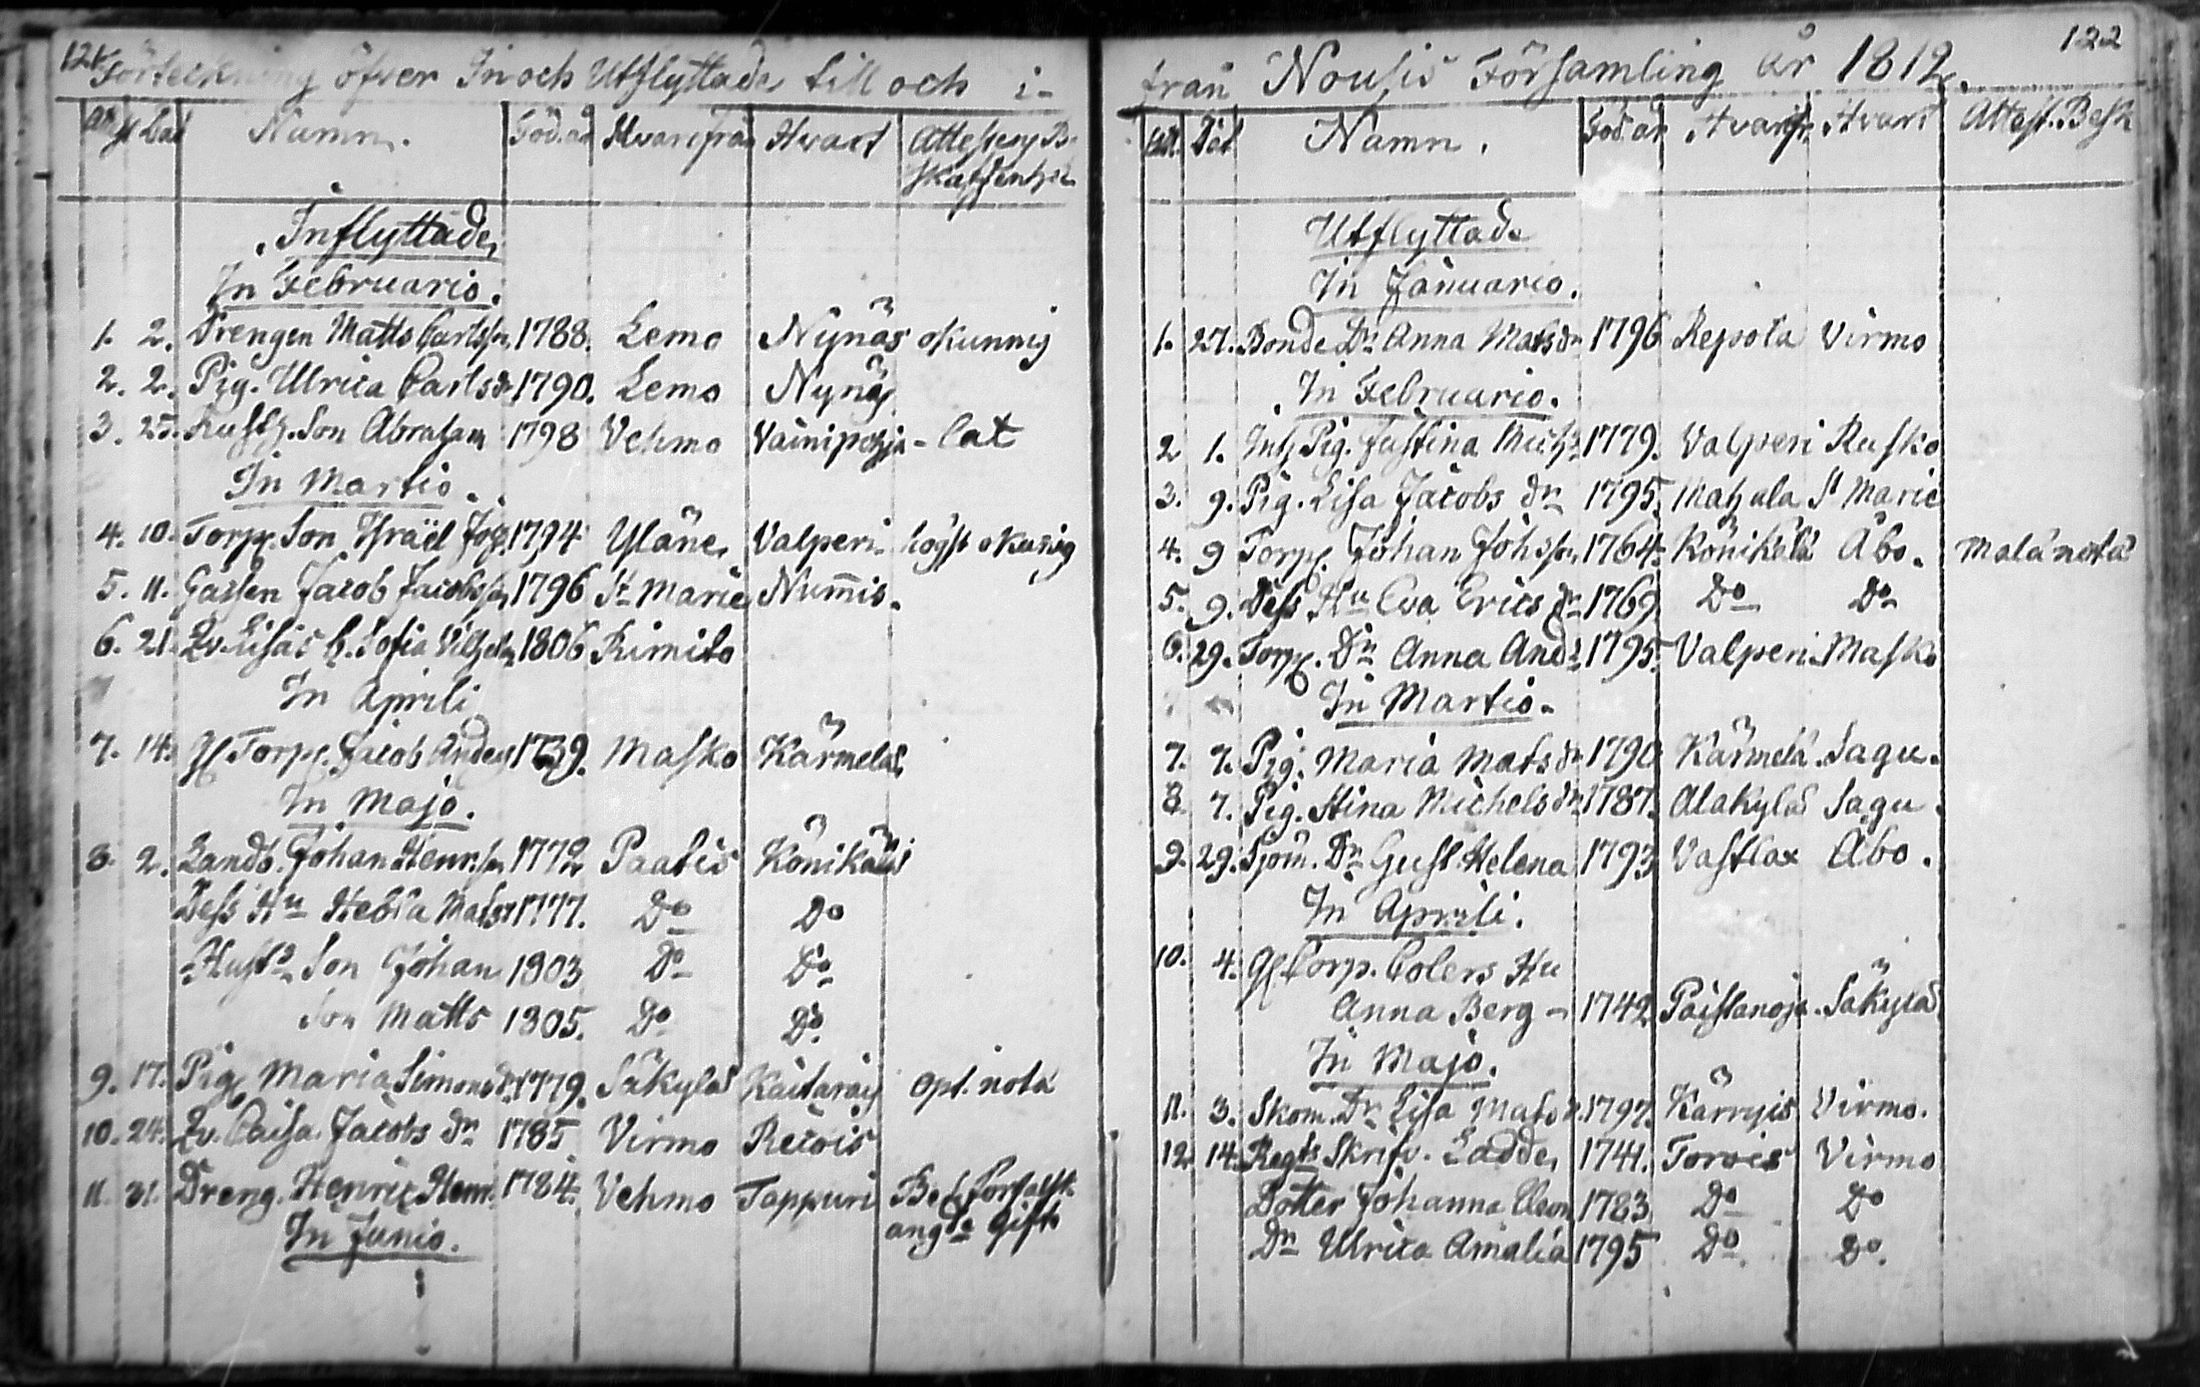 121
Förteckning öfver In och Utflyttade till och i-
Dat Namn. Föd. år Hvarifrån Hvart Attestens Be-
skaffenhet
Inflyttade,
In Februario.
1. 2. Drengen Matts Carlsson 1788. Lemo Nynäs okunnig
2. 2. Pig. Ulrica Carlsdr 1790. Lemo Nynäs
3. 25. Rusth. Son Abraham 1798 Vehmo Vainipohja - Cat
In Martio.
4. 10. Torp. Son Israël 1794 Yläne, Valperi högst okunnig
5. 11. Gossen Jacob Jacobsson 1796 St Marie Nummis.
6. 21. Lisas b. Sofia 1806 Kimito
In Aprili
7. 14. Gl Torp. Jacob Anders 1739. Masko Kärmelä
In Majo.
8. 2. Landb. Johan Henr.son 1772 Paatis Könikälä
Dess Hu Hebla Mats 1777. Do Do
Son Johan 1803 Do Do
Son Matts 1805. Do Do
9. 17. Pig Maria Simonsdr 1779. Säkylä opt. nota
10. 24. Caisa Jacobs dr 1785 Virmo Retois
11. 31. Dreng. Henric Henr. 1784. Vehmo Tappuri
angde Gift
In Junio.
122
från Nousis Församling år 1812.
Dat Namn. Föd år Hvarifr. Hvart Attest. Besk
Utflyttade
In Januario.
1. 27. Bonde Dr Anna Matsdr 1796 Repola Virmo
In Februario.
2 1. Pig. Justina 1779. Valperi Rusko
3. 9. Pig. Lisa Jacobs dr 1795. St Marie
4. 9 Torp. Johan Johsson 1764. Könikälä Åbo. Mala nota
5. 9. Dess Hu Eva Erics dr 1769 Do Do
6. 29. Torp. Dr Anna And 1795. Valperi Masko
In Martio.
7. 7. Pig. Maria Mats dr 1790 Kärmelä Sagu.
8. 7. Pig. Stina Michels dr 1787. Alakylä Sagu.
9. 29. Dr Gust. Helena 1793 Vastlax Åbo.
In Aprili.
10. 4. Gl Corp. Colers Hu
Anna Berg - 1742 Paistanoja Säkylä
In Majo.
11. 3. Skom. Dr Lisa Mats dr. 1797. Kärryis Virmo.
12. 14. Regts Skrifv. Ladde, 1741. Torois Virmo
Dotter Johanna 1783 Do Do
Dr Ulrica Amalia 1795 Do Do.